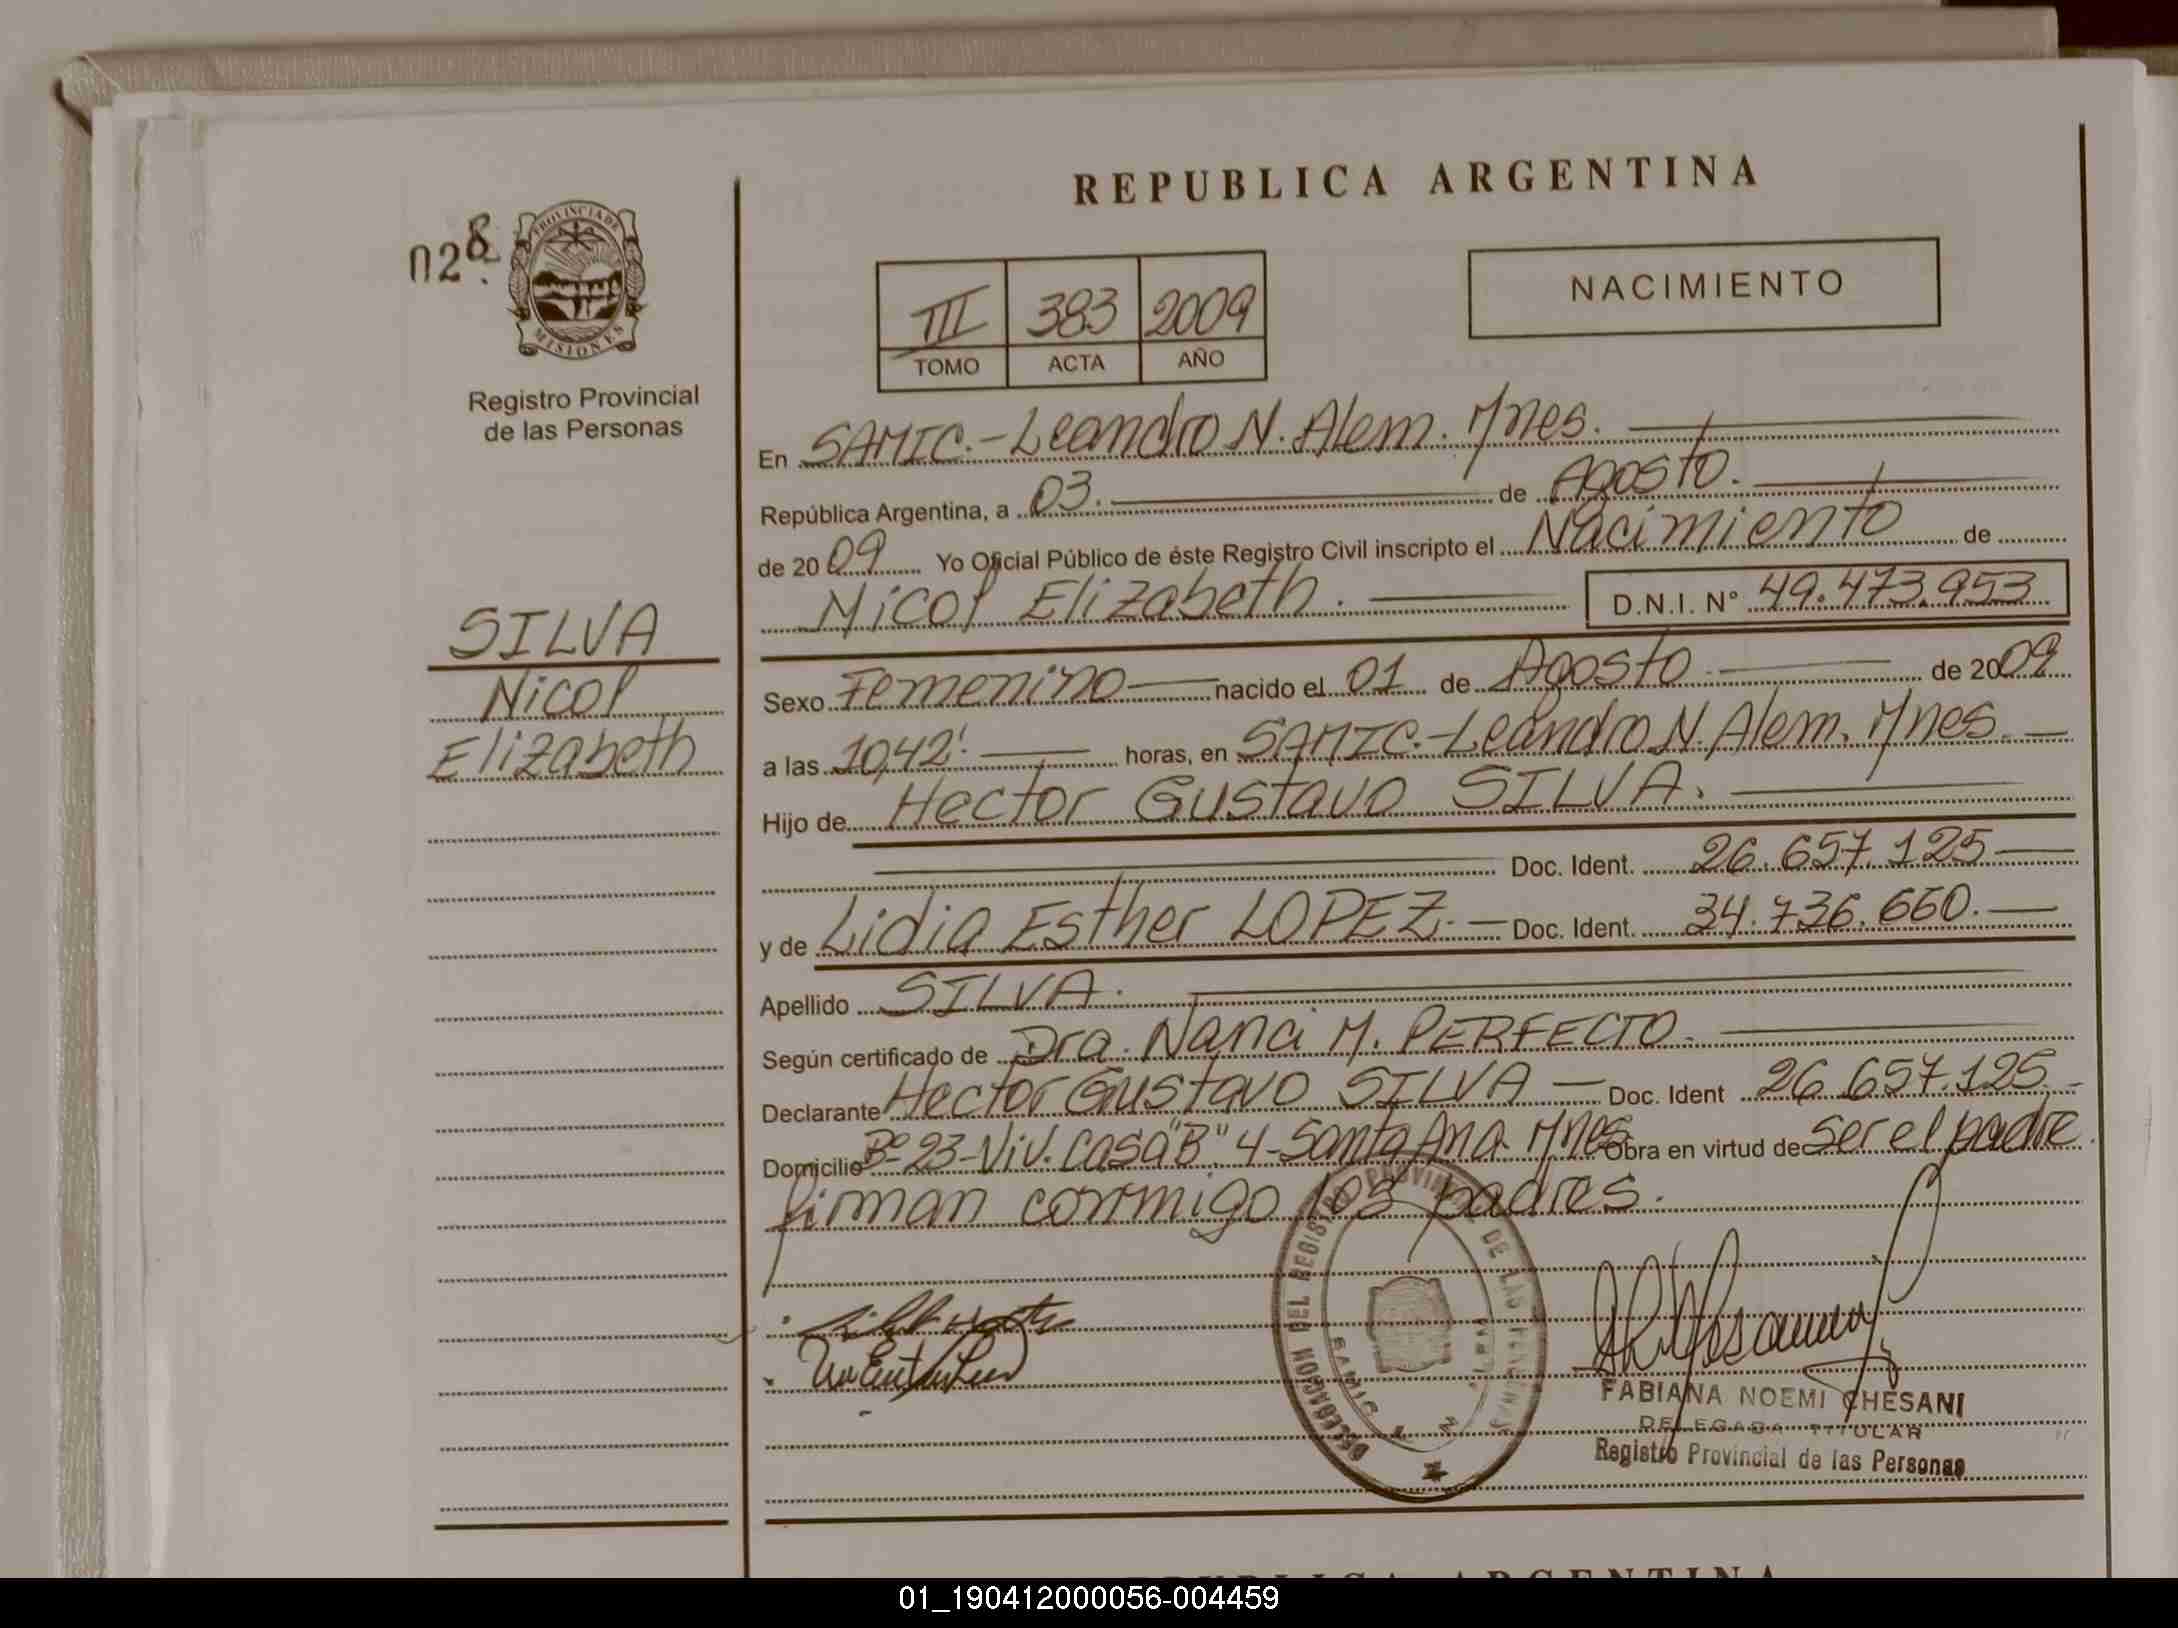 REPUBLICA ARGENTINA
028
PROVINCIA DE
MISIONES
Registro Provincial
de las Personas
III 383 2009
TOMO ACTA AÑO
NACIMIENTO
En SAMIC.-Leandro N. Alem. Mnes.
República Argentina, a 03. de Agosto.
de 2009 Yo Oficial Público de éste Registro Civil inscripto el Nacimiento de
Nicol Elizabeth. D.N.I. Nº 49.473.953
SILVA
Nicol
Elizabeth
Sexo Femenino nacido el 01 de Agosto de 2009
a las 10,42' horas, en SAMIC.-Leandro N. Alem. Mnes.
Hijo de Hector Gustavo SILVA.
Doc. Ident. 26.657.125
y de Lidia Esther LOPEZ.- Doc. Ident. 34.736.660.
Apellido SILVA.
Según certificado de Dra. Nanci M. PERFECTO.
Declarante Hector Gustavo SILVA Doc. Ident 26.657.125.
Domicilio Bº 23-Viv. Casa "B" 4-Santa Ana. Mnes Obra en virtud de ser el padre.
firman conmigo los padres.
DELEGACION DEL REGISTRO PROVINCIAL DE LAS PERSONAS
SAMIC
FABIANA NOEMI CHESANI
DELEGADA TITULAR
Registro Provincial de las Personas
REPUBLICA ARGENTINA
01_190412000056-004459